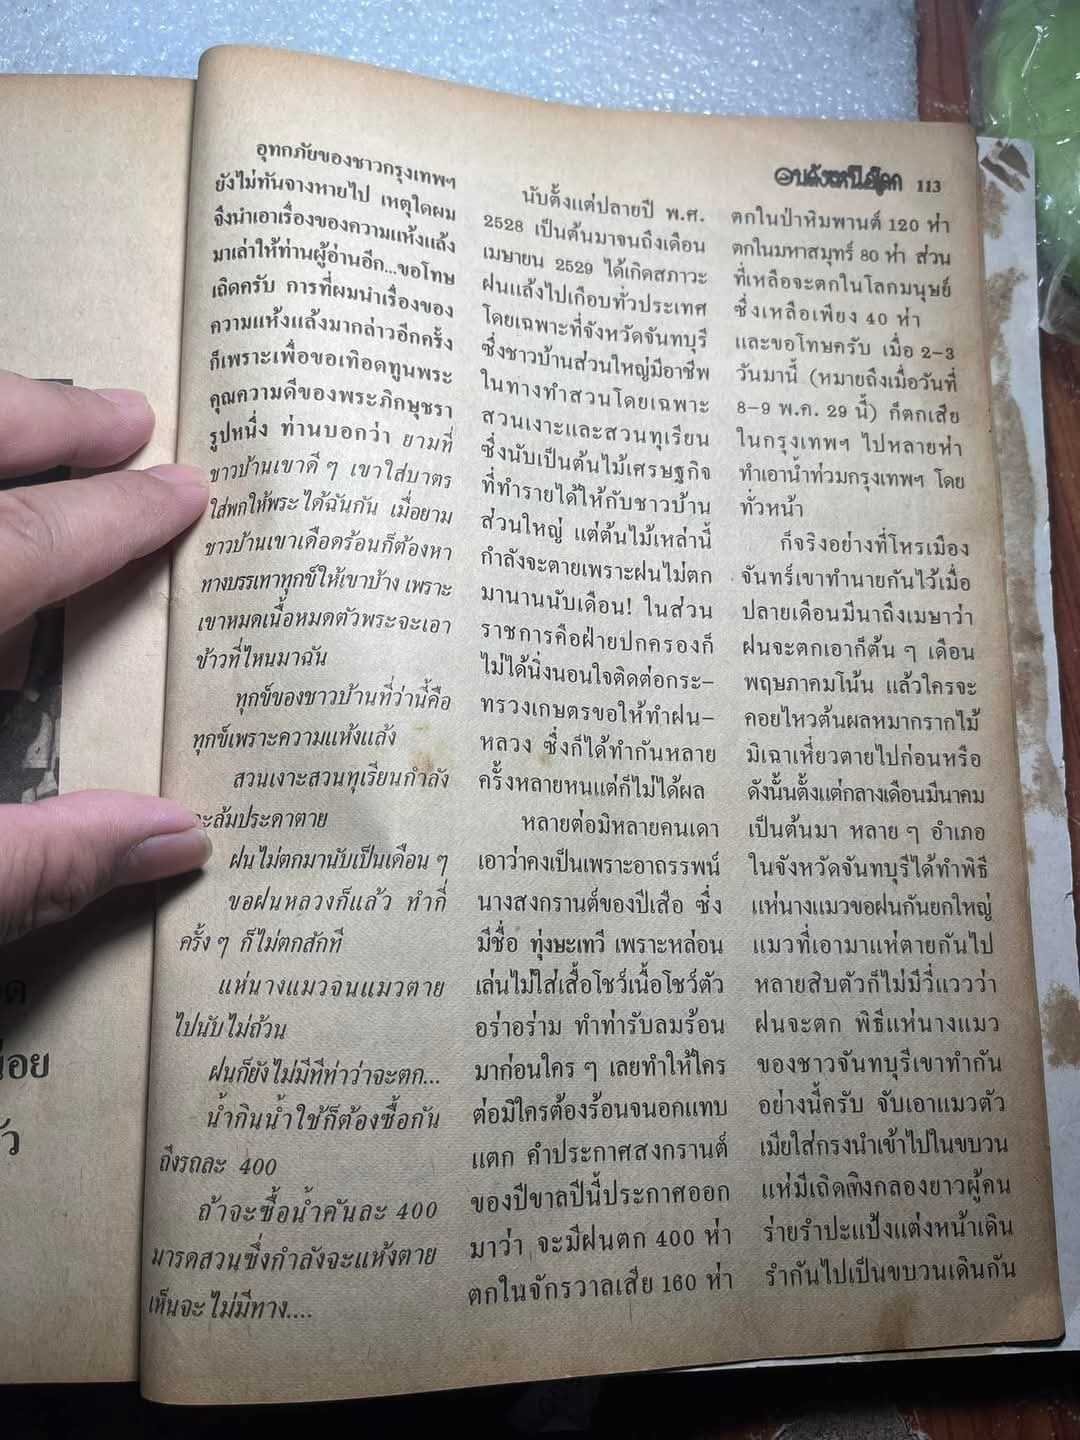 113
อุทกภัยของชาวกรุงเทพฯ
ยังไม่ทันจางหายไป เหตุใดผม
จึงนำเอาเรื่องของความแห้งแล้ง
มาเล่าให้ท่านผู้อ่านอีก...ขอโทษ
เถิดครับ การที่ผมนำเรื่องของ
ความแห้งแล้งมากล่าวอีกครั้ง
ก็เพราะเพื่อขอเทิอดทูนพระ
คุณความดีของพระภิกษุชรา
รูปหนึ่ง ท่านบอกว่า ยามที่
ชาวบ้านเขาดี ๆ เขาใส่บาตร
ใส่พกให้พระได้ฉันกัน เมื่อยาม
ชาวบ้านเขาเดือดร้อนก็ต้องหา
ทางบรรเทาทุกข์ให้เขาบ้าง เพราะ
เขาหมดเนื้อหมดตัวพระจะเอา
ข้าวที่ไหนมาฉัน
ทุกข์ของชาวบ้านที่ว่านี้คือ
ทุกข์เพราะความแห้งแล้ง
สวนเงาะสวนทุเรียนกำลัง
จะล้มประดาตาย
ฝนไม่ตกมานับเป็นเดือน ๆ
ขอฝนหลวงก็แล้ว ทำกี่
ครั้ง ๆ ก็ไม่ตกสักที
แห่นางแมวจนแมวตาย
ไปนับไม่ถ้วน
ฝนก็ยังไม่มีทีท่าว่าจะตก...
น้ำกินน้ำใช้ก็ต้องซื้อกัน
ถึงรถละ 400
ถ้าจะซื้อน้ำคันละ 400
มารดสวนซึ่งกำลังจะแห้งตาย
เห็นจะไม่มีทาง....
นับตั้งแต่ปลายปี พ.ศ.
2528 เป็นต้นมาจนถึงเดือน
เมษายน 2529 ได้เกิดสภาวะ
ฝนแล้งไปเกือบทั่วประเทศ
โดยเฉพาะที่จังหวัดจันทบุรี
ซึ่งชาวบ้านส่วนใหญ่มีอาชีพ
ในทางทำสวนโดยเฉพาะ
สวนเงาะและสวนทุเรียน
ซึ่งนับเป็นต้นไม้เศรษฐกิจ
ที่ทำรายได้ให้กับชาวบ้าน
ส่วนใหญ่ แต่ต้นไม้เหล่านี้
กำลังจะตายเพราะฝนไม่ตก
มานานนับเดือน! ในส่วน
ราชการคือฝ่ายปกครองก็
ไม่ได้นิ่งนอนใจติดต่อกระ-
ทรวงเกษตรขอให้ทำฝน-
หลวง ซึ่งก็ได้ทำกันหลาย
ครั้งหลายหนแต่ก็ไม่ได้ผล
หลายต่อมิหลายคนเดา
เอาว่าคงเป็นเพราะอาถรรพน์
นางสงกรานต์ของปีเสือ ซึ่ง
มีชื่อ ทุ่งษะเทวี เพราะหล่อน
เล่นไม่ใส่เสื้อโชว์เนื้อโชว์ตัว
อร่าอร่าม ทำท่ารับลมร้อน
มาก่อนใคร ๆ เลยทำให้ใคร
ต่อมิใครต้องร้อนจนอกแทบ
แตก คำประกาศสงกรานต์
ของปีขาลปีนี้ประกาศออก
มาว่า จะมีฝนตก 400 ห่า
ตกในจักรวาลเสีย 160 ห่า
ตกในป่าหิมพานต์ 120 ห่า
ตกในมหาสมุทร์ 80 ห่า ส่วน
ที่เหลือจะตกในโลกมนุษย์
ซึ่งเหลือเพียง 40 ห่า
และขอโทษครับ เมื่อ 2-3
วันมานี้ (หมายถึงเมื่อวันที่
8-9 พ.ค. 29 นี้) ก็ตกเสีย
ในกรุงเทพฯ ไปหลายห่า
ทำเอาน้ำท่วมกรุงเทพฯ โดย
ทั่วหน้า
ก็จริงอย่างที่โหรเมือง
จันทร์เขาทำนายกันไว้เมื่อ
ปลายเดือนมีนาถึงเมษาว่า
ฝนจะตกเอาก็ต้น ๆ เดือน
พฤษภาคมโน้น แล้วใครจะ
คอยไหวต้นผลหมากรากไม้
มิเฉาเหี่ยวตายไปก่อนหรือ
ดังนั้นตั้งแต่กลางเดือนมีนาคม
เป็นต้นมา หลาย ๆ อำเภอ
ในจังหวัดจันทบุรีได้ทำพิธี
แห่นางแมวขอฝนกันยกใหญ่
แมวที่เอามาแห่ตายกันไป
หลายสิบตัวก็ไม่มีวี่แววว่า
ฝนจะตก พิธีแห่นางแมว
ของชาวจันทบุรีเขาทำกัน
อย่างนี้ครับ จับเอาแมวตัว
เมียใส่กรงนำเข้าไปในขบวน
แห่มีเถิดเทิงกลองยาวผู้คน
ร่ายรำปะแป้งแต่งหน้าเดิน
รำกันไปเป็นขบวนเดินกัน